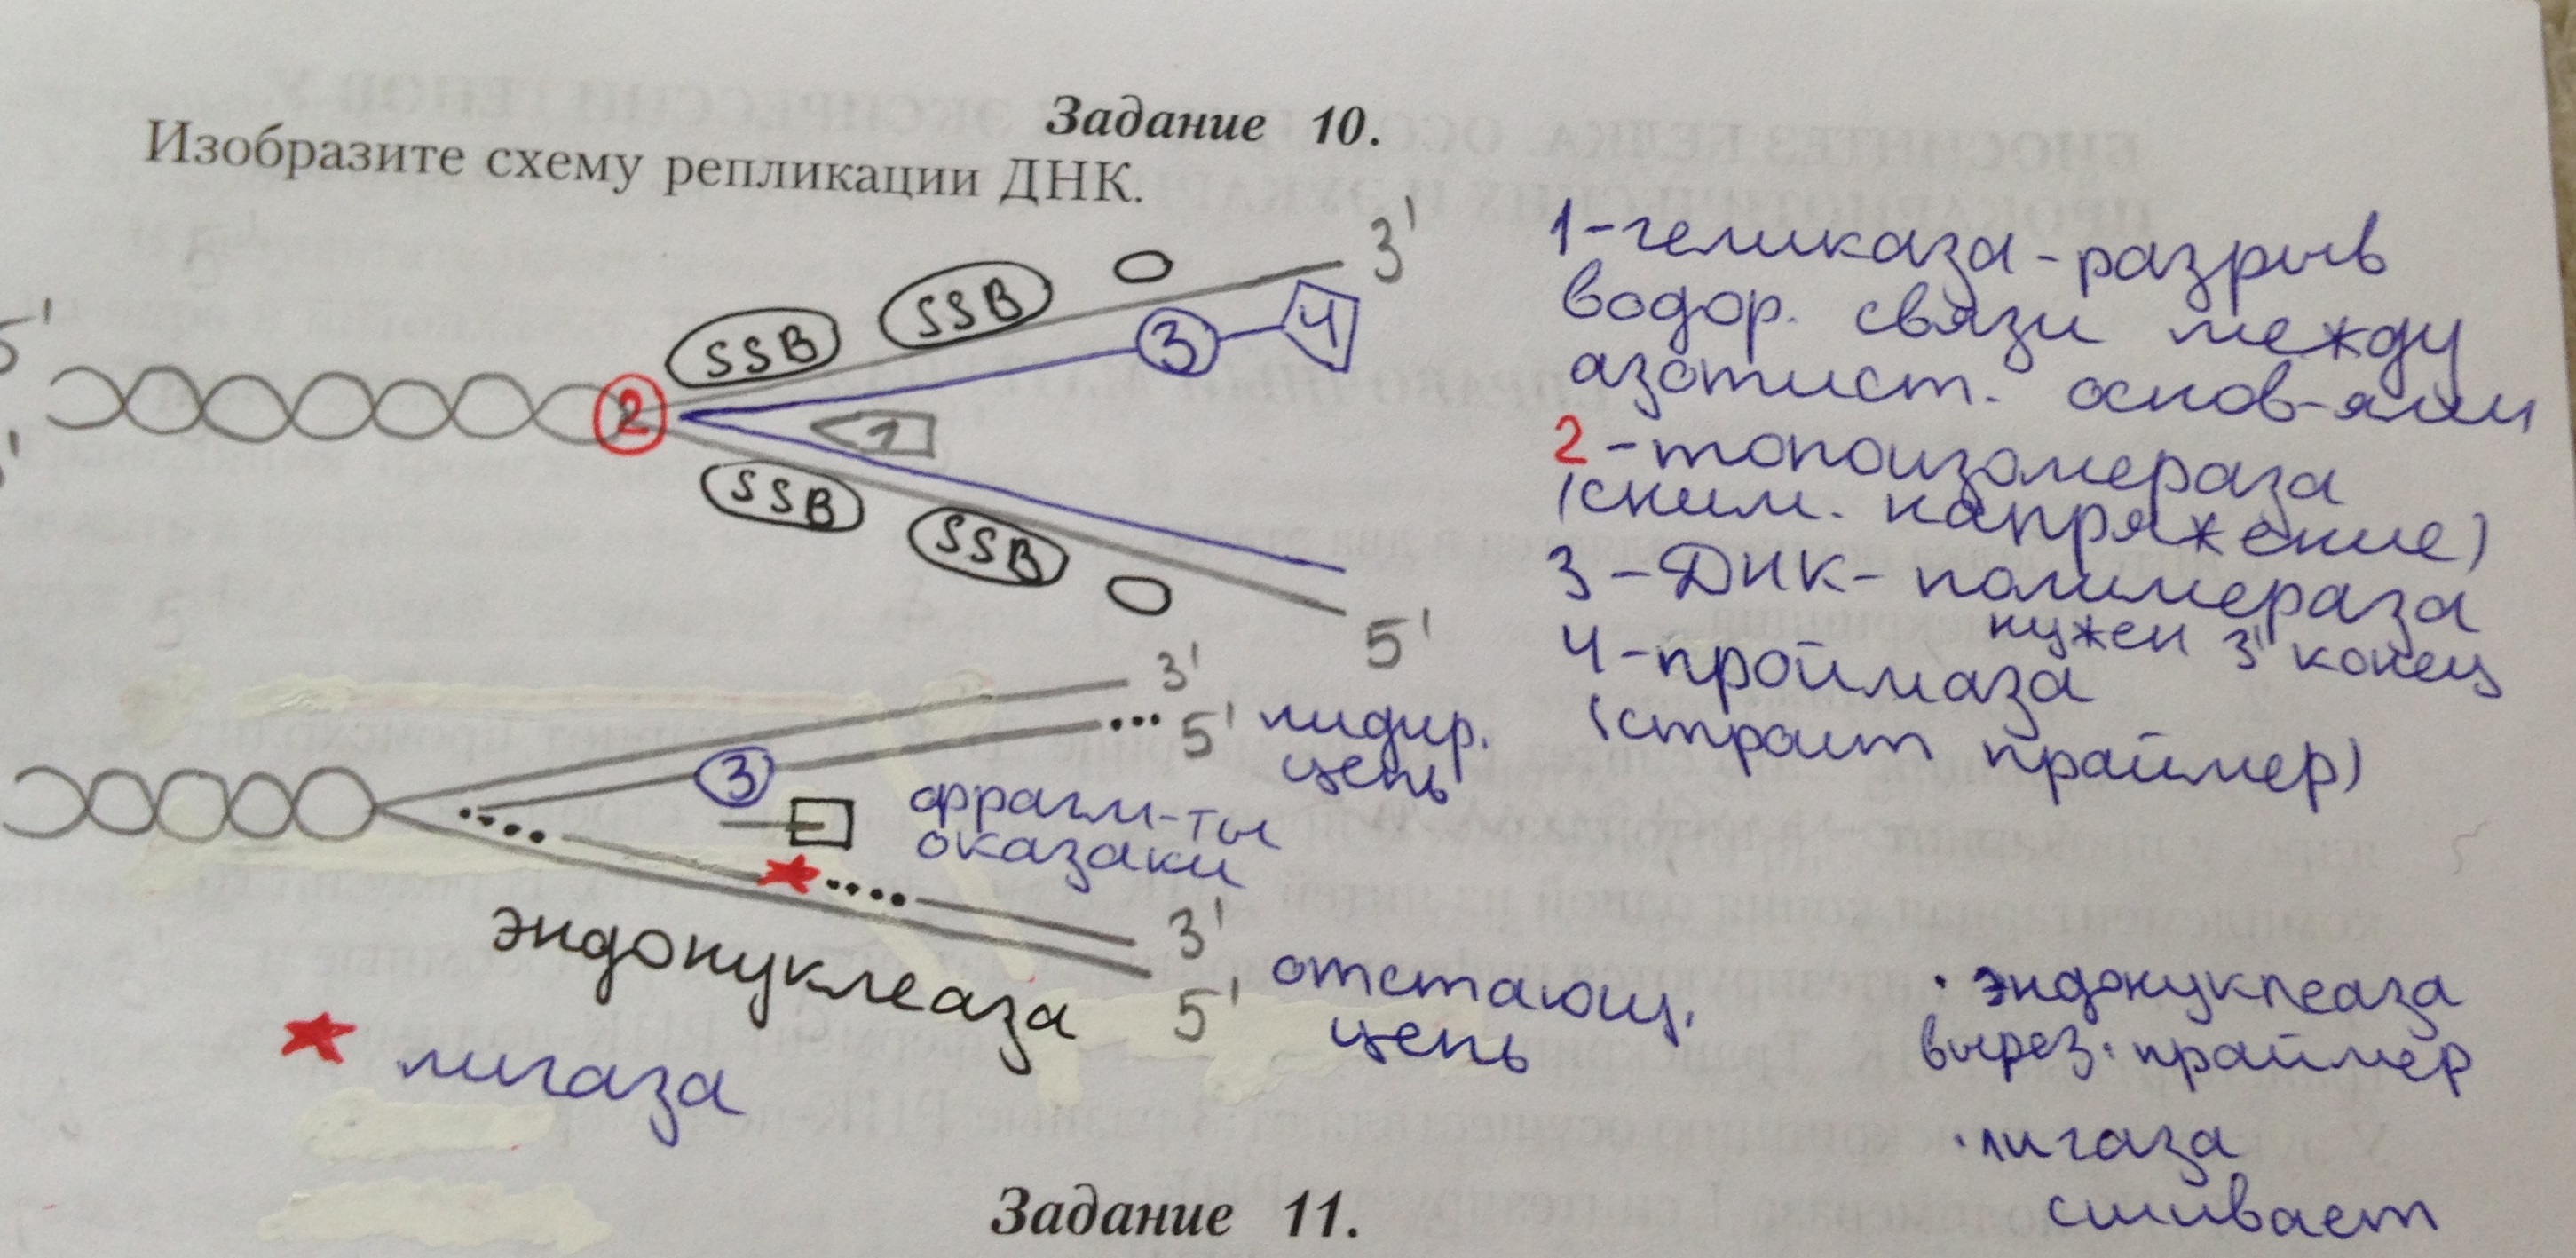 Задание 10.
Изобразите схему репликации ДНК.
3'
SSB
SSB
3
4
5'
2
1
SSB
SSB
5'
1-геликаза-разрыв
водор. связи между
азотист. основ-ями
2-топоизомераза
(сним. напряжение)
3-ДНК-полимераза
нужен 3' конец
4-проймаза
(строит праймер)
3'
5' лидир.
цепь
3
фрагм-ты
оказаки
3'
5'
отстающ.
цепь
эндонуклеаза
лигаза
· эндонуклеаза
вырез. праймер
· лигаза
сшивает
Задание 11.